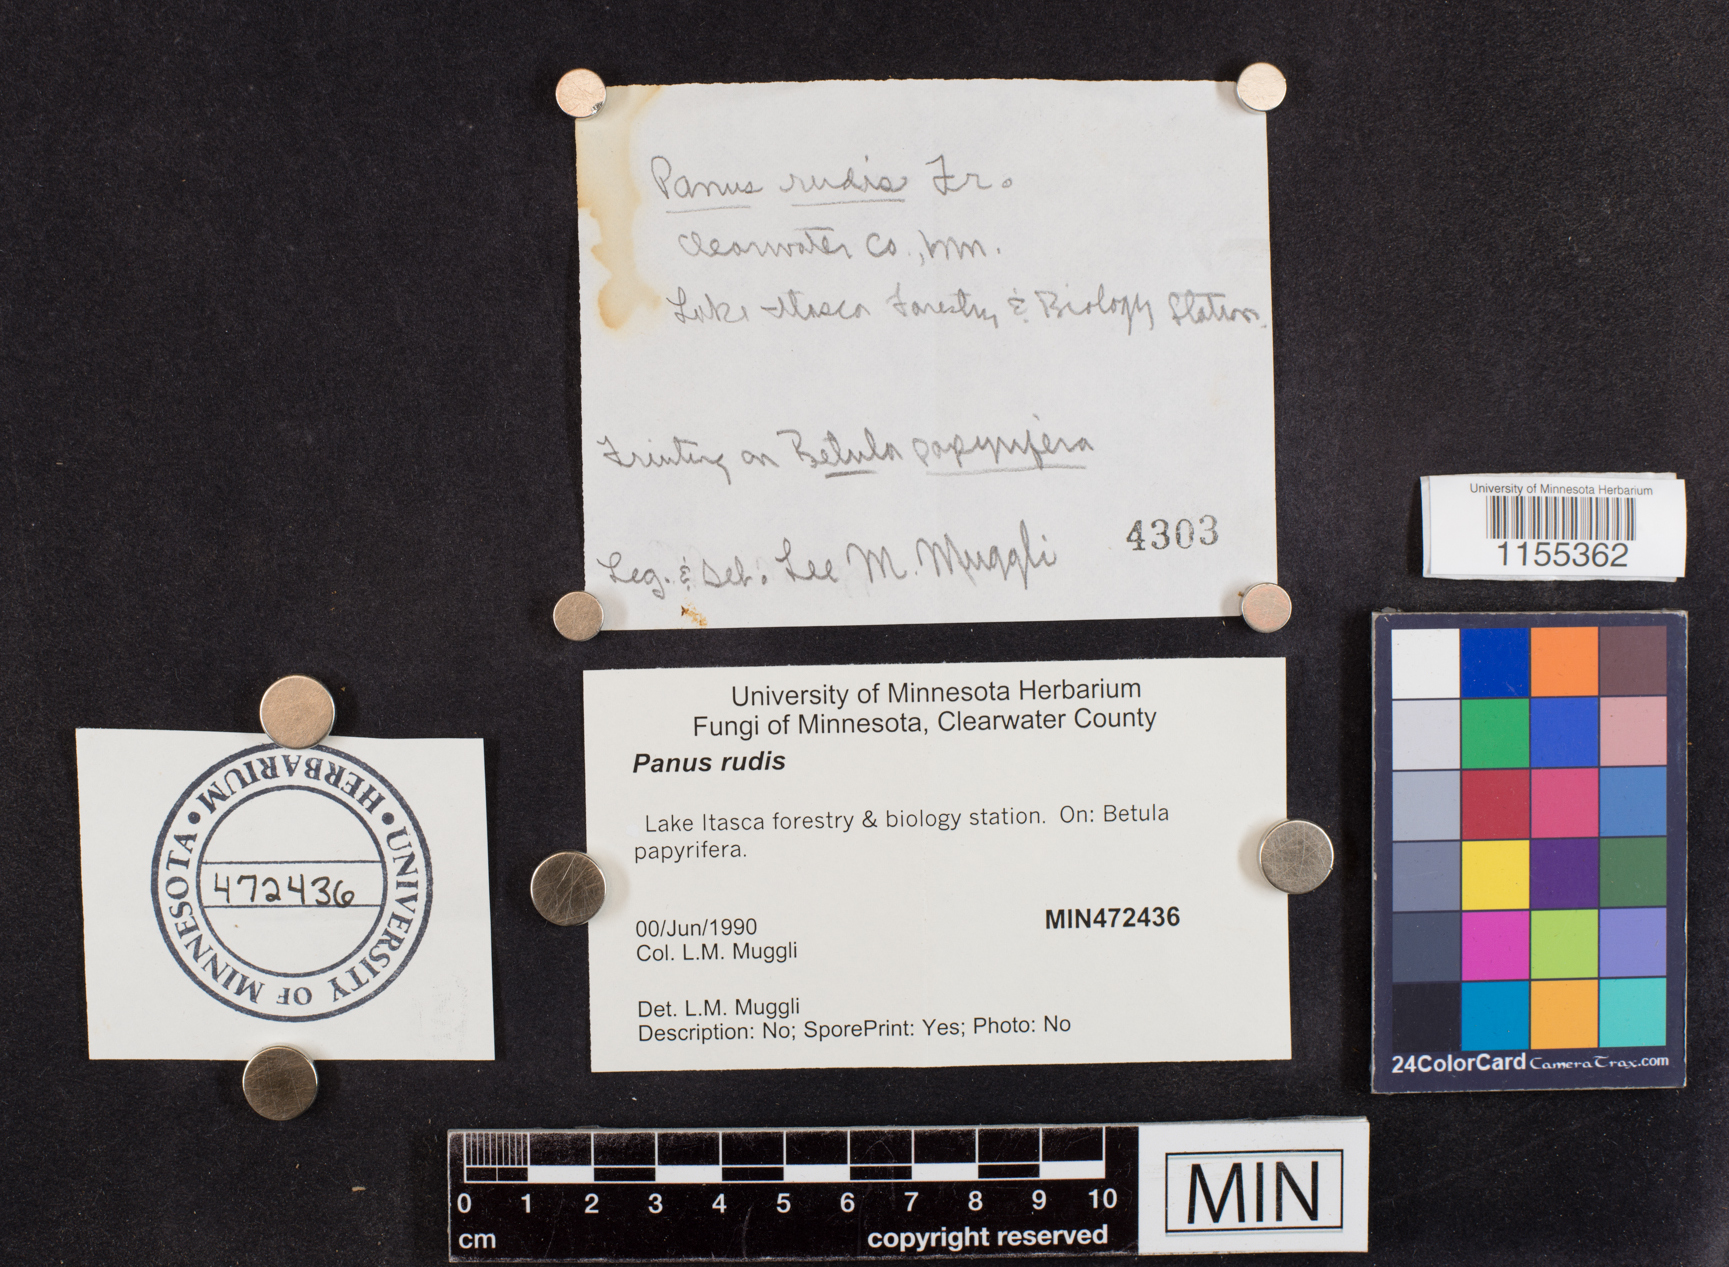 Panus rudis Fr.
Clearwater Co., Mn.
Lake Itasca Forestry & Biology Station.
Fruiting on Betula papyrifera
Leg. & Det. Lee M. Muggli
4303
University of Minnesota Herbarium
1155362
University of Minnesota Herbarium
Fungi of Minnesota, Clearwater County
Panus rudis
Lake Itasca forestry & biology station. On: Betula
papyrifera.
00/Jun/1990
MIN472436
Col. L.M. Muggli
Det. L.M. Muggli
Description: No; SporePrint: Yes; Photo: No
• UNIVERSITY OF MINNESOTA • HERBARIUM
472436
24ColorCard CameraTrax.com
0 1 2 3 4 5 6 7 8 9 10
cm
copyright reserved
MIN